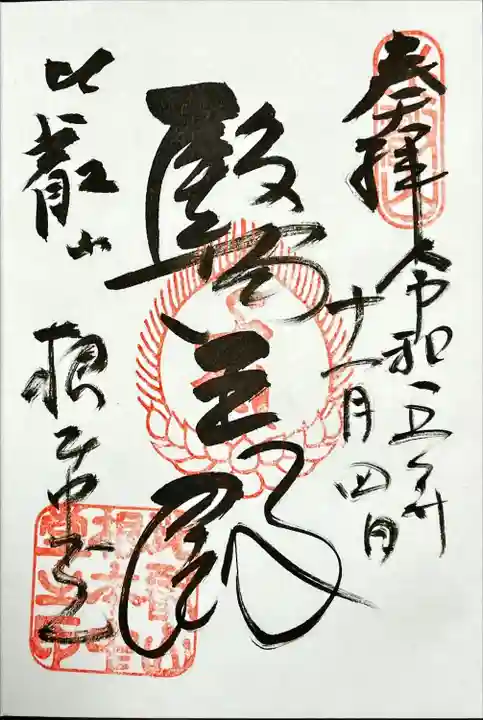 奉拝
令和五年
十一月四日
醫王殿
比叡山
根本中堂
比叡山
根本中
堂之印